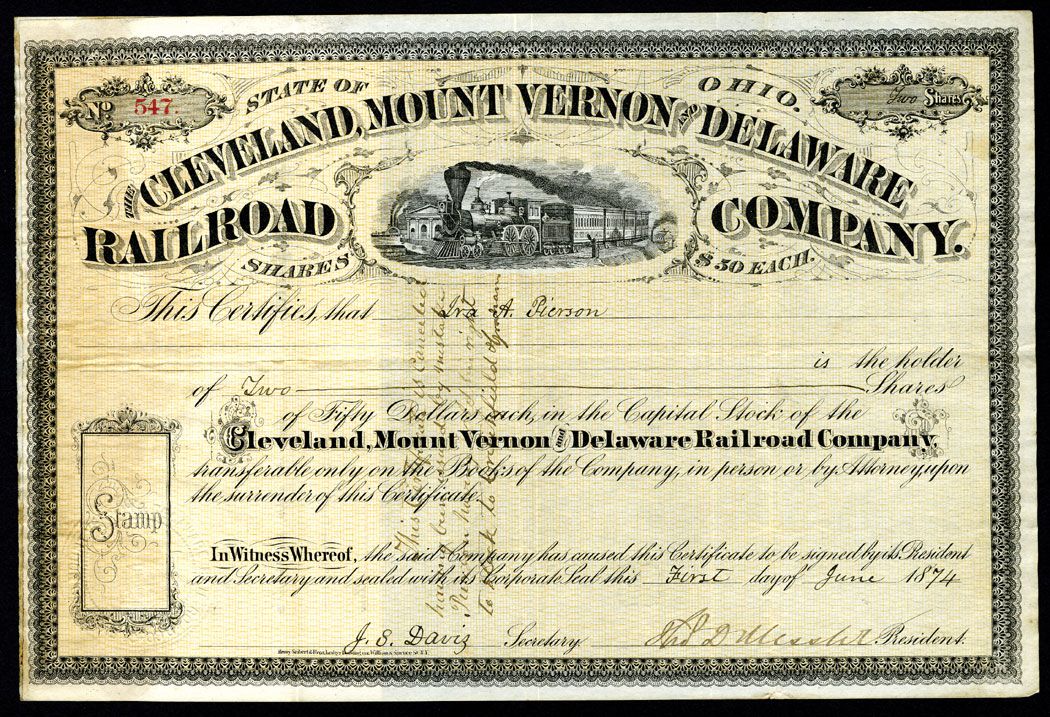 No 547.
STATE OF OHIO.
Two Shares
THE CLEVELAND, MOUNT VERNON AND DELAWARE
RAILROAD COMPANY.
SHARES $50 EACH.
This Certifies, that Ira A. Pierson
is the holder
of Two Shares
of Fifty Dollars each, in the Capital Stock of the
Cleveland, Mount Vernon and Delaware Railroad Company,
transferable only on the Books of the Company, in person or by Attorney, upon
the surrender of this Certificate.
Stamp
In Witness Whereof, the said Company has caused this Certificate to be signed by its President
and Secretary and sealed with its Corporate Seal this First day of June 1874
J. S. Davis Secretary. President.
This Certificate is Cancelled
having been issued by mistake
to